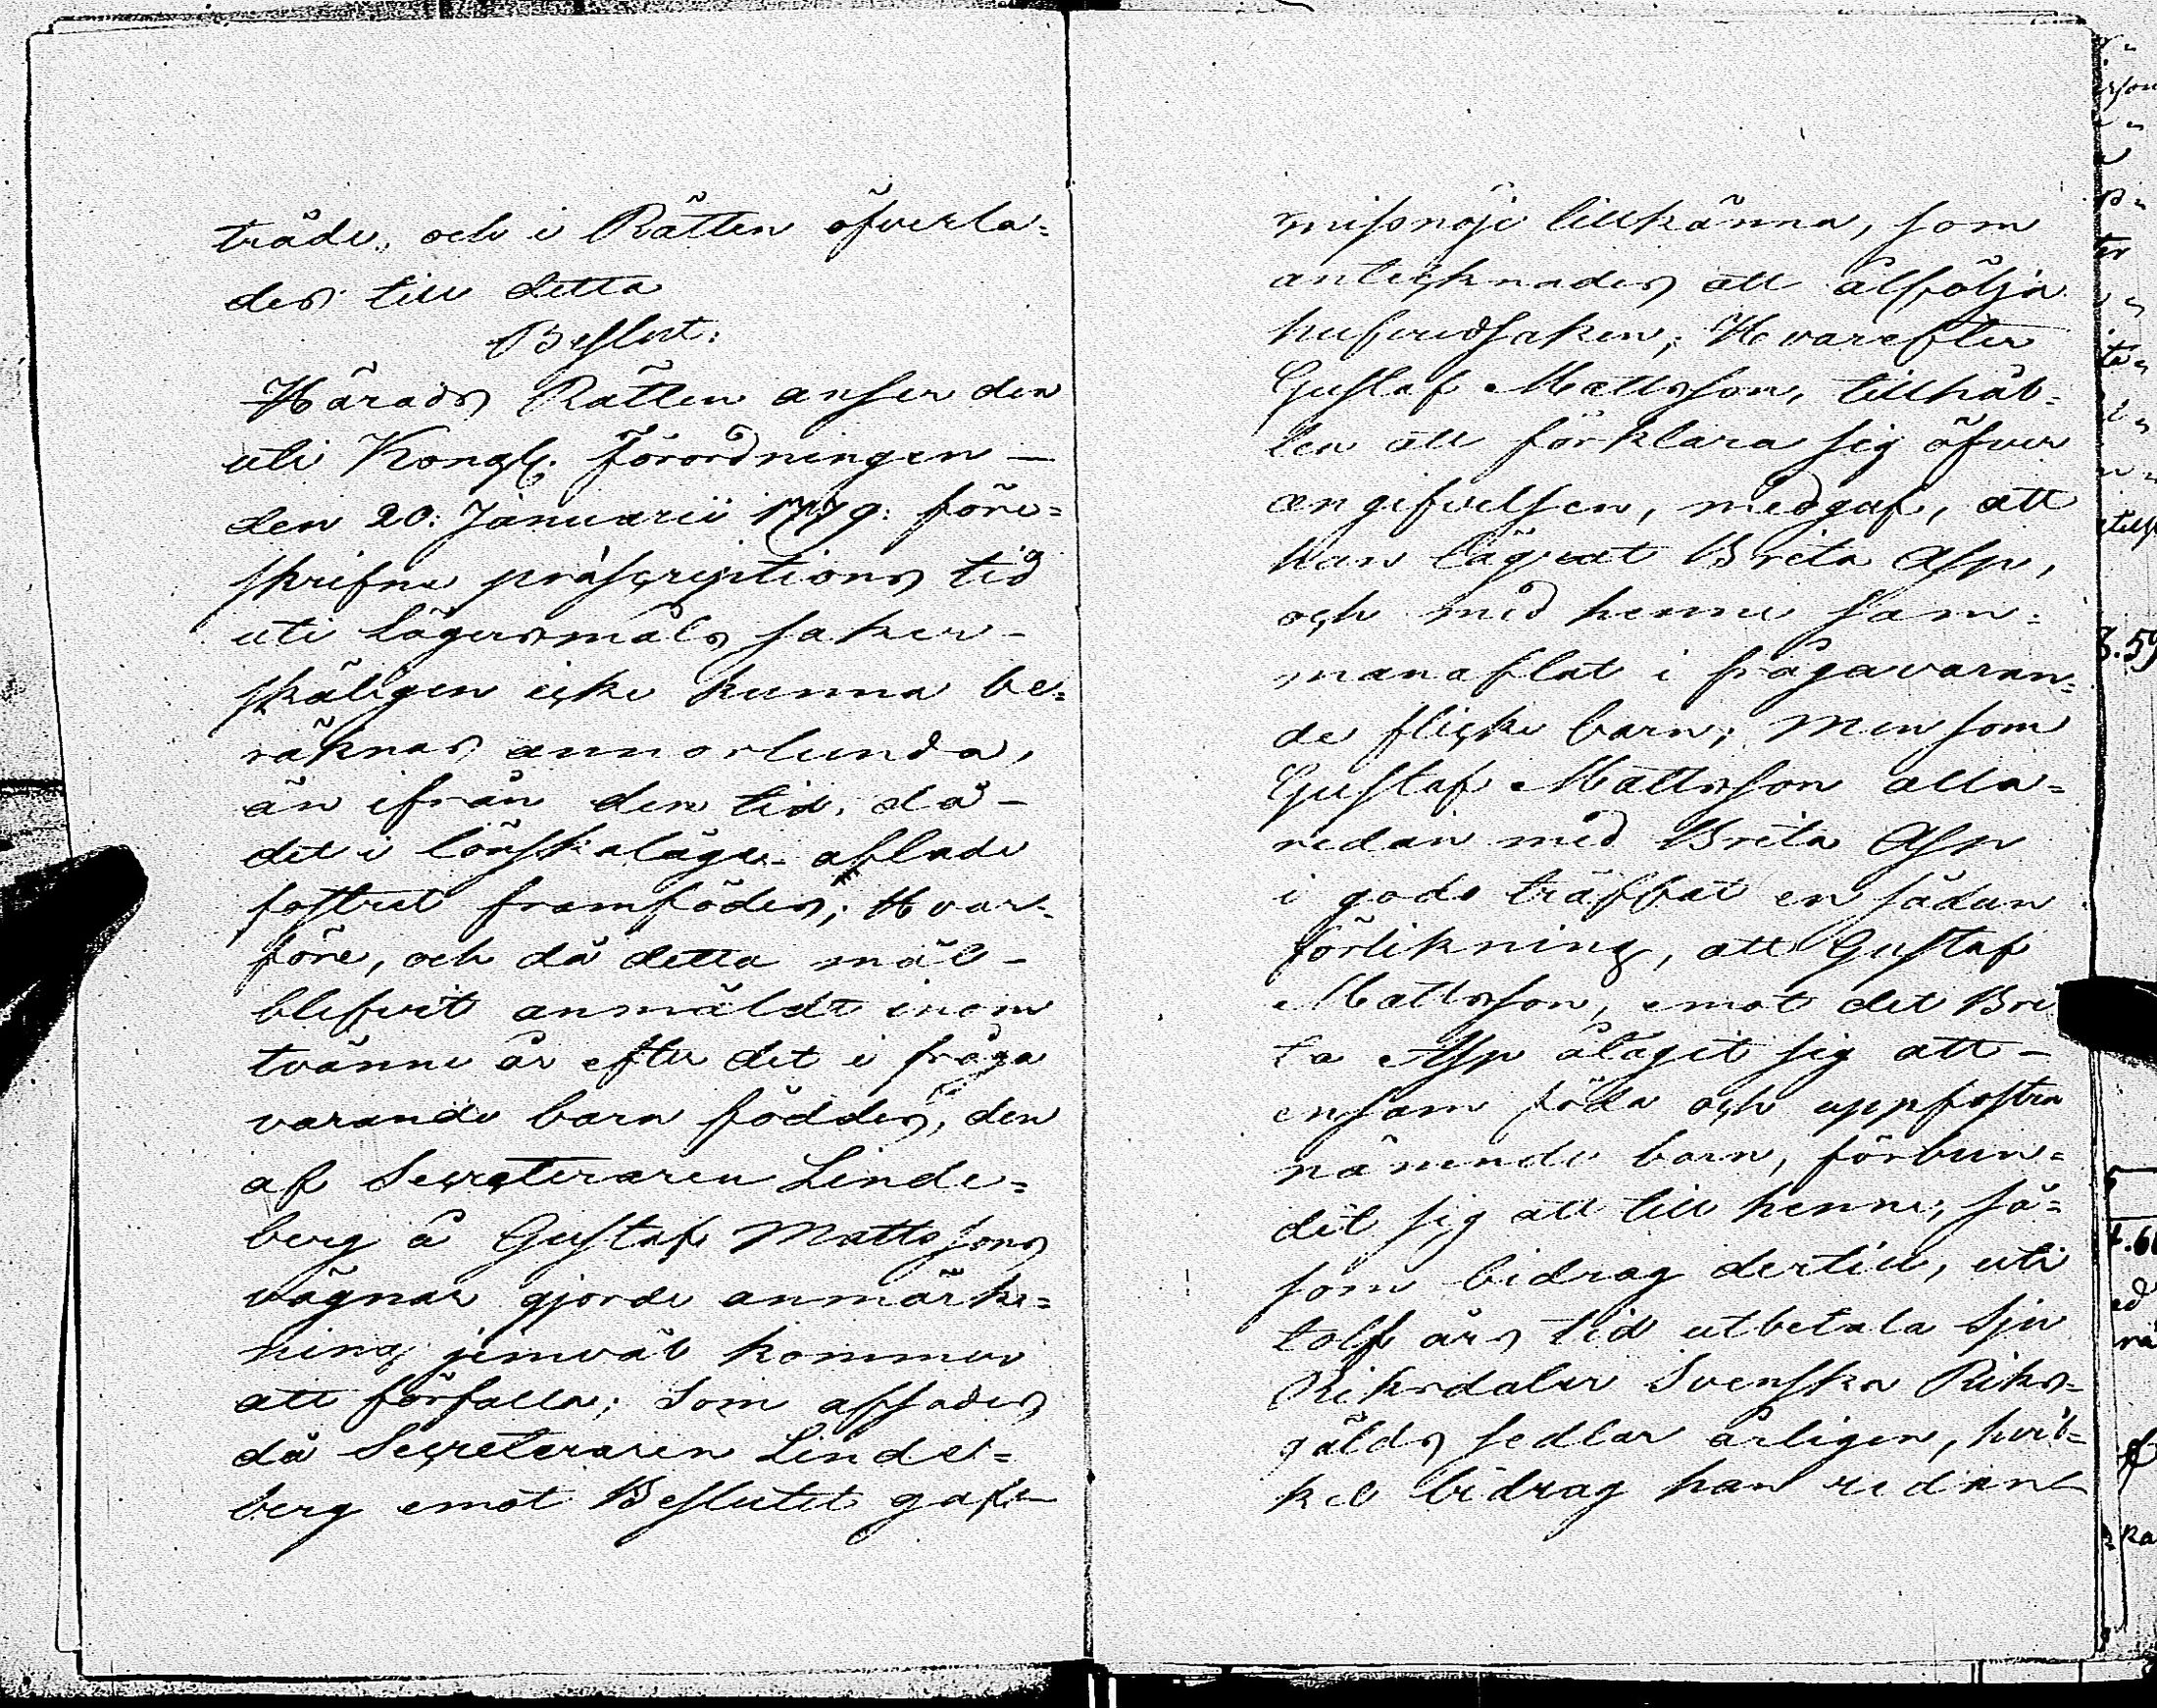 träde, och i Rätten öfverla=
des till detta
Beslut:
Härads Rätten anser den
uti Kongl. Förordningen —
den 20: Januarii 1779: före=
skrifne præscriptions tid
uti lägersmåls saker —
skäligen icke kunna be=
räknas annorlunda,
än ifrån den tid, då —
det i lönskaläge aflade
fostret framföddes; Hvar=
före, och då detta mål —
blifvit anmäldt inom
tvänne år efter det i fråga
varande barn föddes, den
af Secreteraren Linde=
berg å Gustaf Mattssons
vägnar gjorde anmärk=
ning jemväl kommer
att förfalla; Som afsades
då Secreteraren Linde=
berg emot Beslutet gaf
missnöje tillkänna, som
antecknades att åtfölja
hufvudsaken; Hvarefter
Gustaf Mattsson, tillhål=
len att förklara sig öfver
angifvelsen, medgaf, att
han lägrat Brita Asp,
och med henne sam=
manaflat i frågavaran=
de flicke barn; Men som
Gustaf Mattsson alla=
redan med Brita Asp
i godo träffat en sådan
förlikning, att Gustaf
Mattsson, emot det Bri
ta Asp ålagit sig att —
ensam föda och uppfostra
nämnde barn, förbun=
dit sig att till henne, så=
som bidrag dertill, uti
tolf års tid utbetala Sju
Riksdaler Svenska Riks=
gälds sedlar årligen, hvil=
ket bidrag han redan